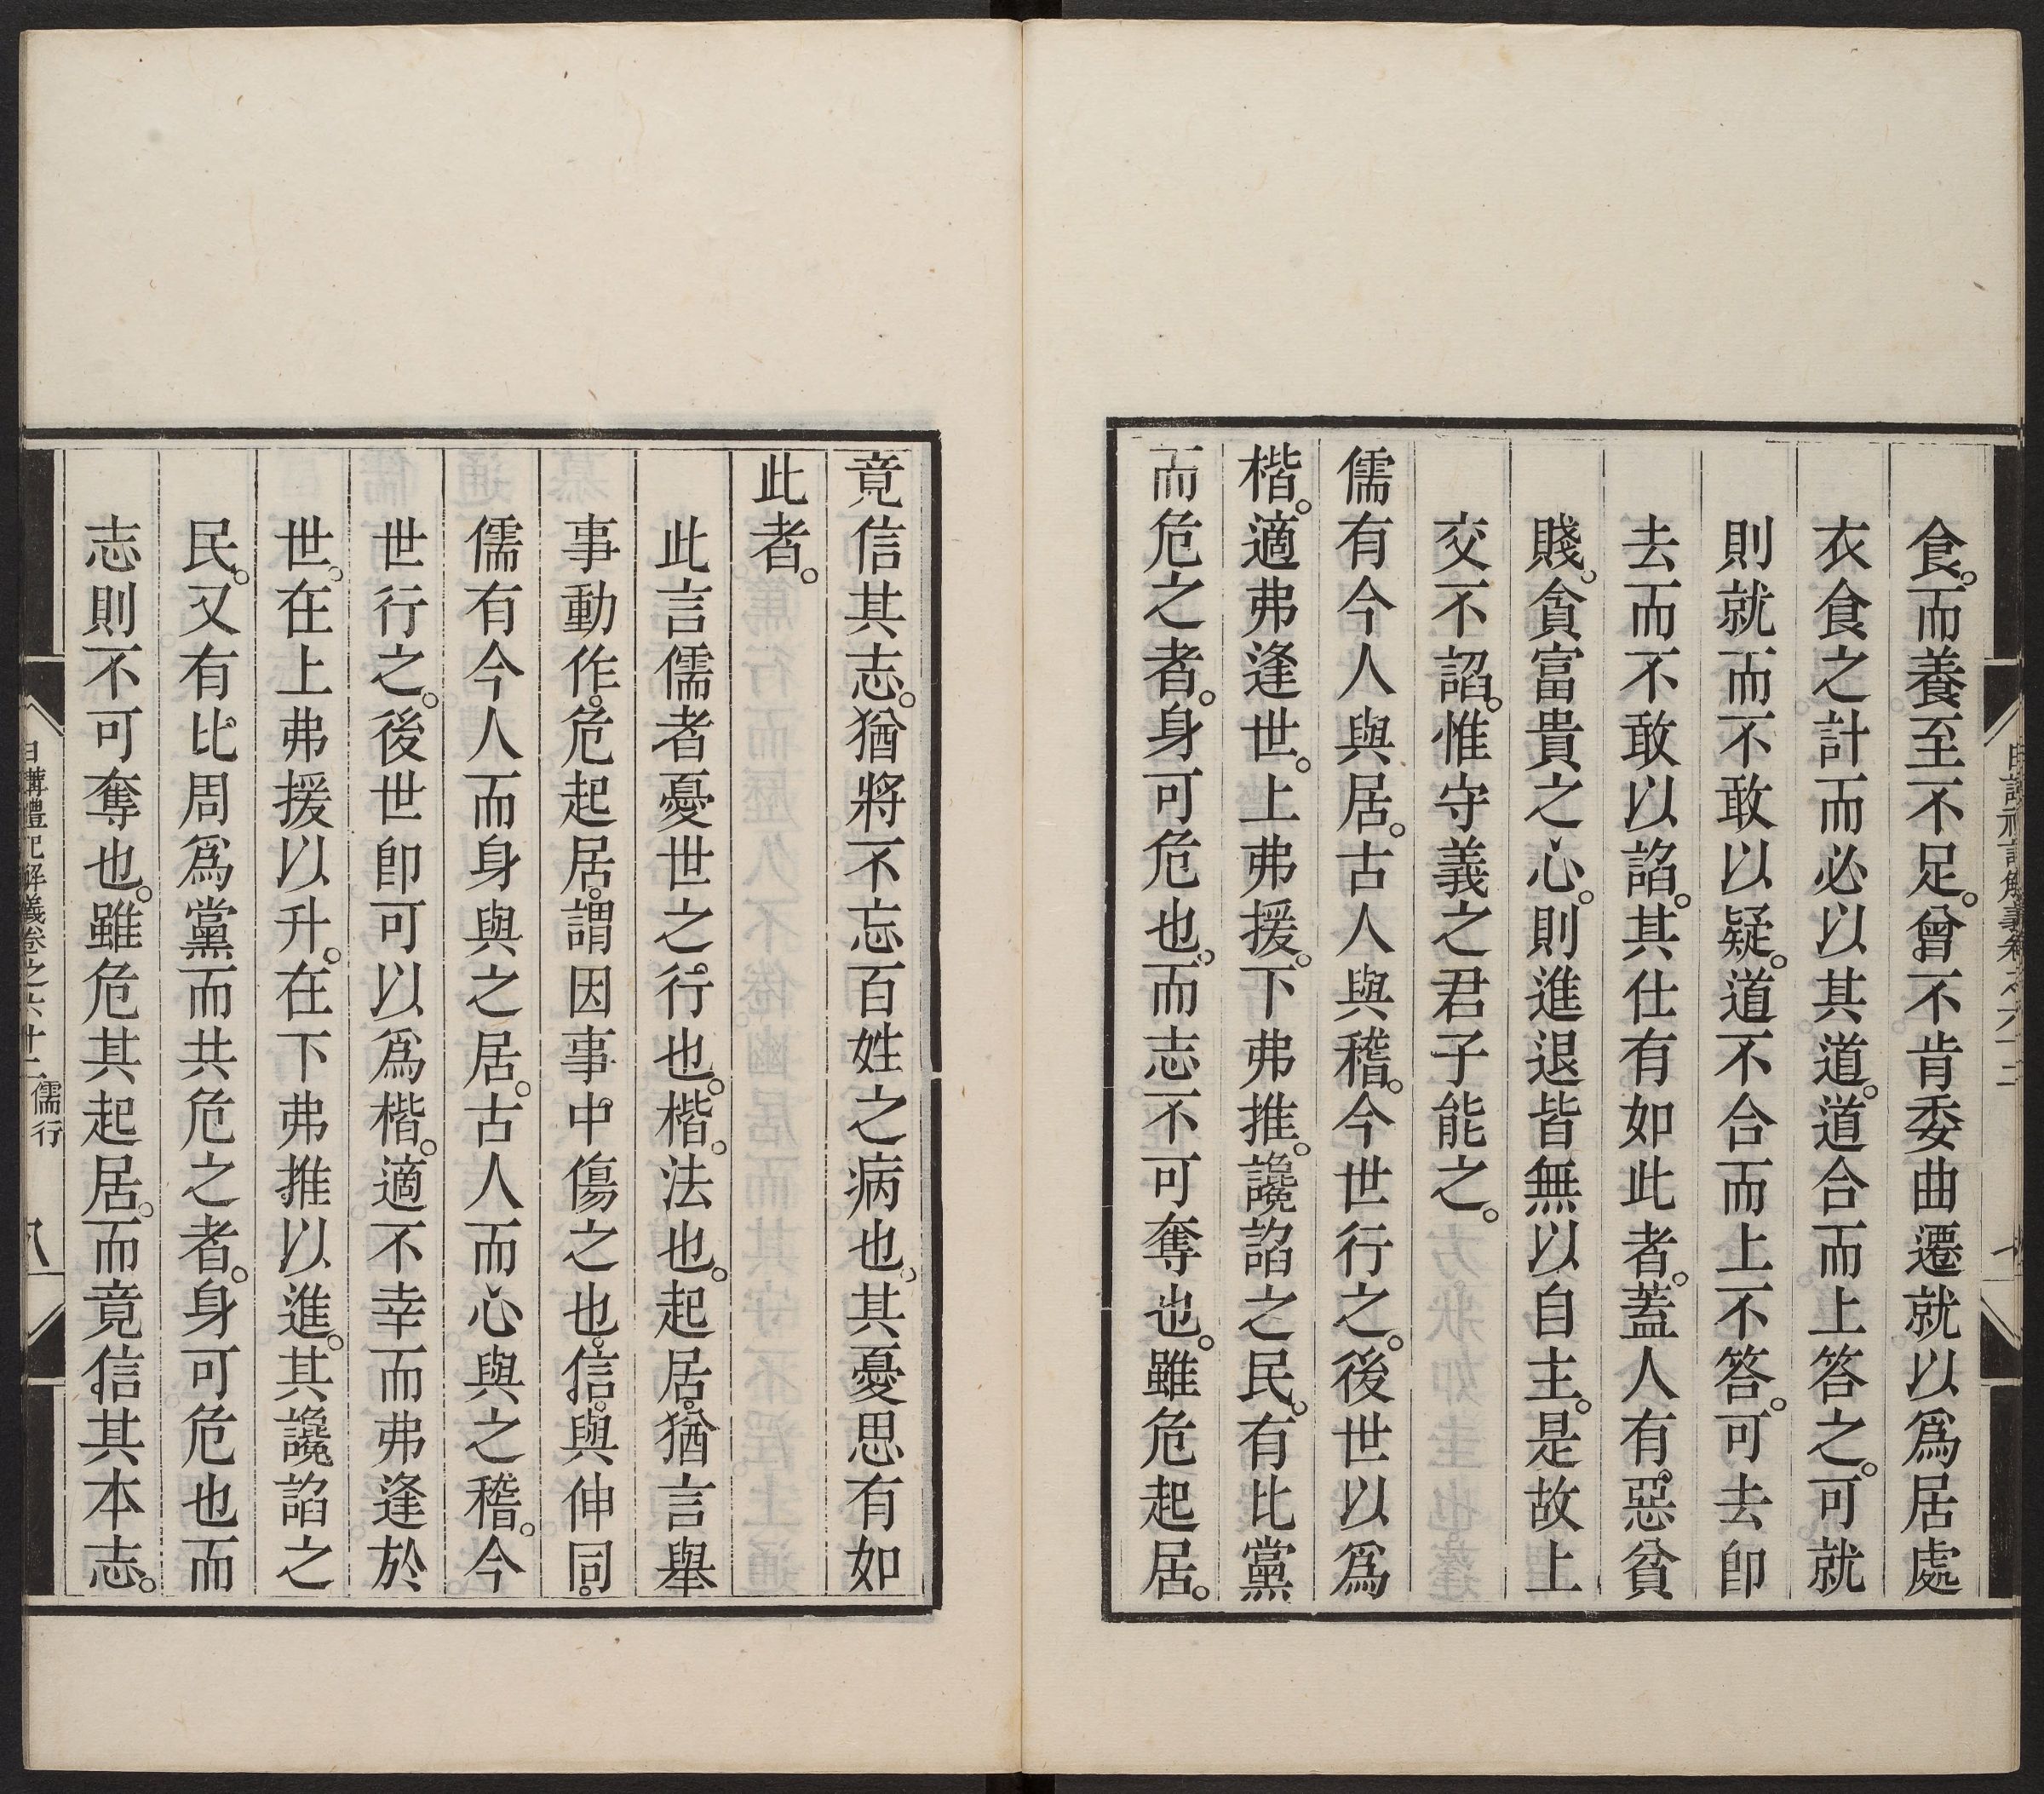 食。而養至不足。曾不肯委曲遷就以爲居處
衣食之計而必以其道。道合而上答之。可就
則就而不敢以疑。道不合而上不答。可去卽
去而不敢以諂。其仕有如此者。蓋人有惡貧
賤。貪富貴之心。則進退皆無以自主。是故上
交不諂。惟守義之君子能之。
儒有今人與居。古人與稽。今世行之。後世以爲
楷。適弗逢世。上弗援。下弗推。讒諂之民。有比黨
而危之者。身可危也。而志不可奪也。雖危起居。
竟信其志。猶將不忘百姓之病也。其憂思有如
此者。
此言儒者憂世之行也。楷。法也。起居。猶言舉
事動作。危起居。謂因事中傷之也。信。與伸同。
儒有今人而身與之居。古人而心與之稽。今
世行之。後世卽可以爲楷。適不幸而弗逢於
世。在上弗援以升。在下弗推以進。其讒諂之
民。又有比周爲黨而共危之者。身可危也而
志則不可奪也。雖危其起居。而竟信其本志。
日講禮記解義卷之六十二 儒行 八